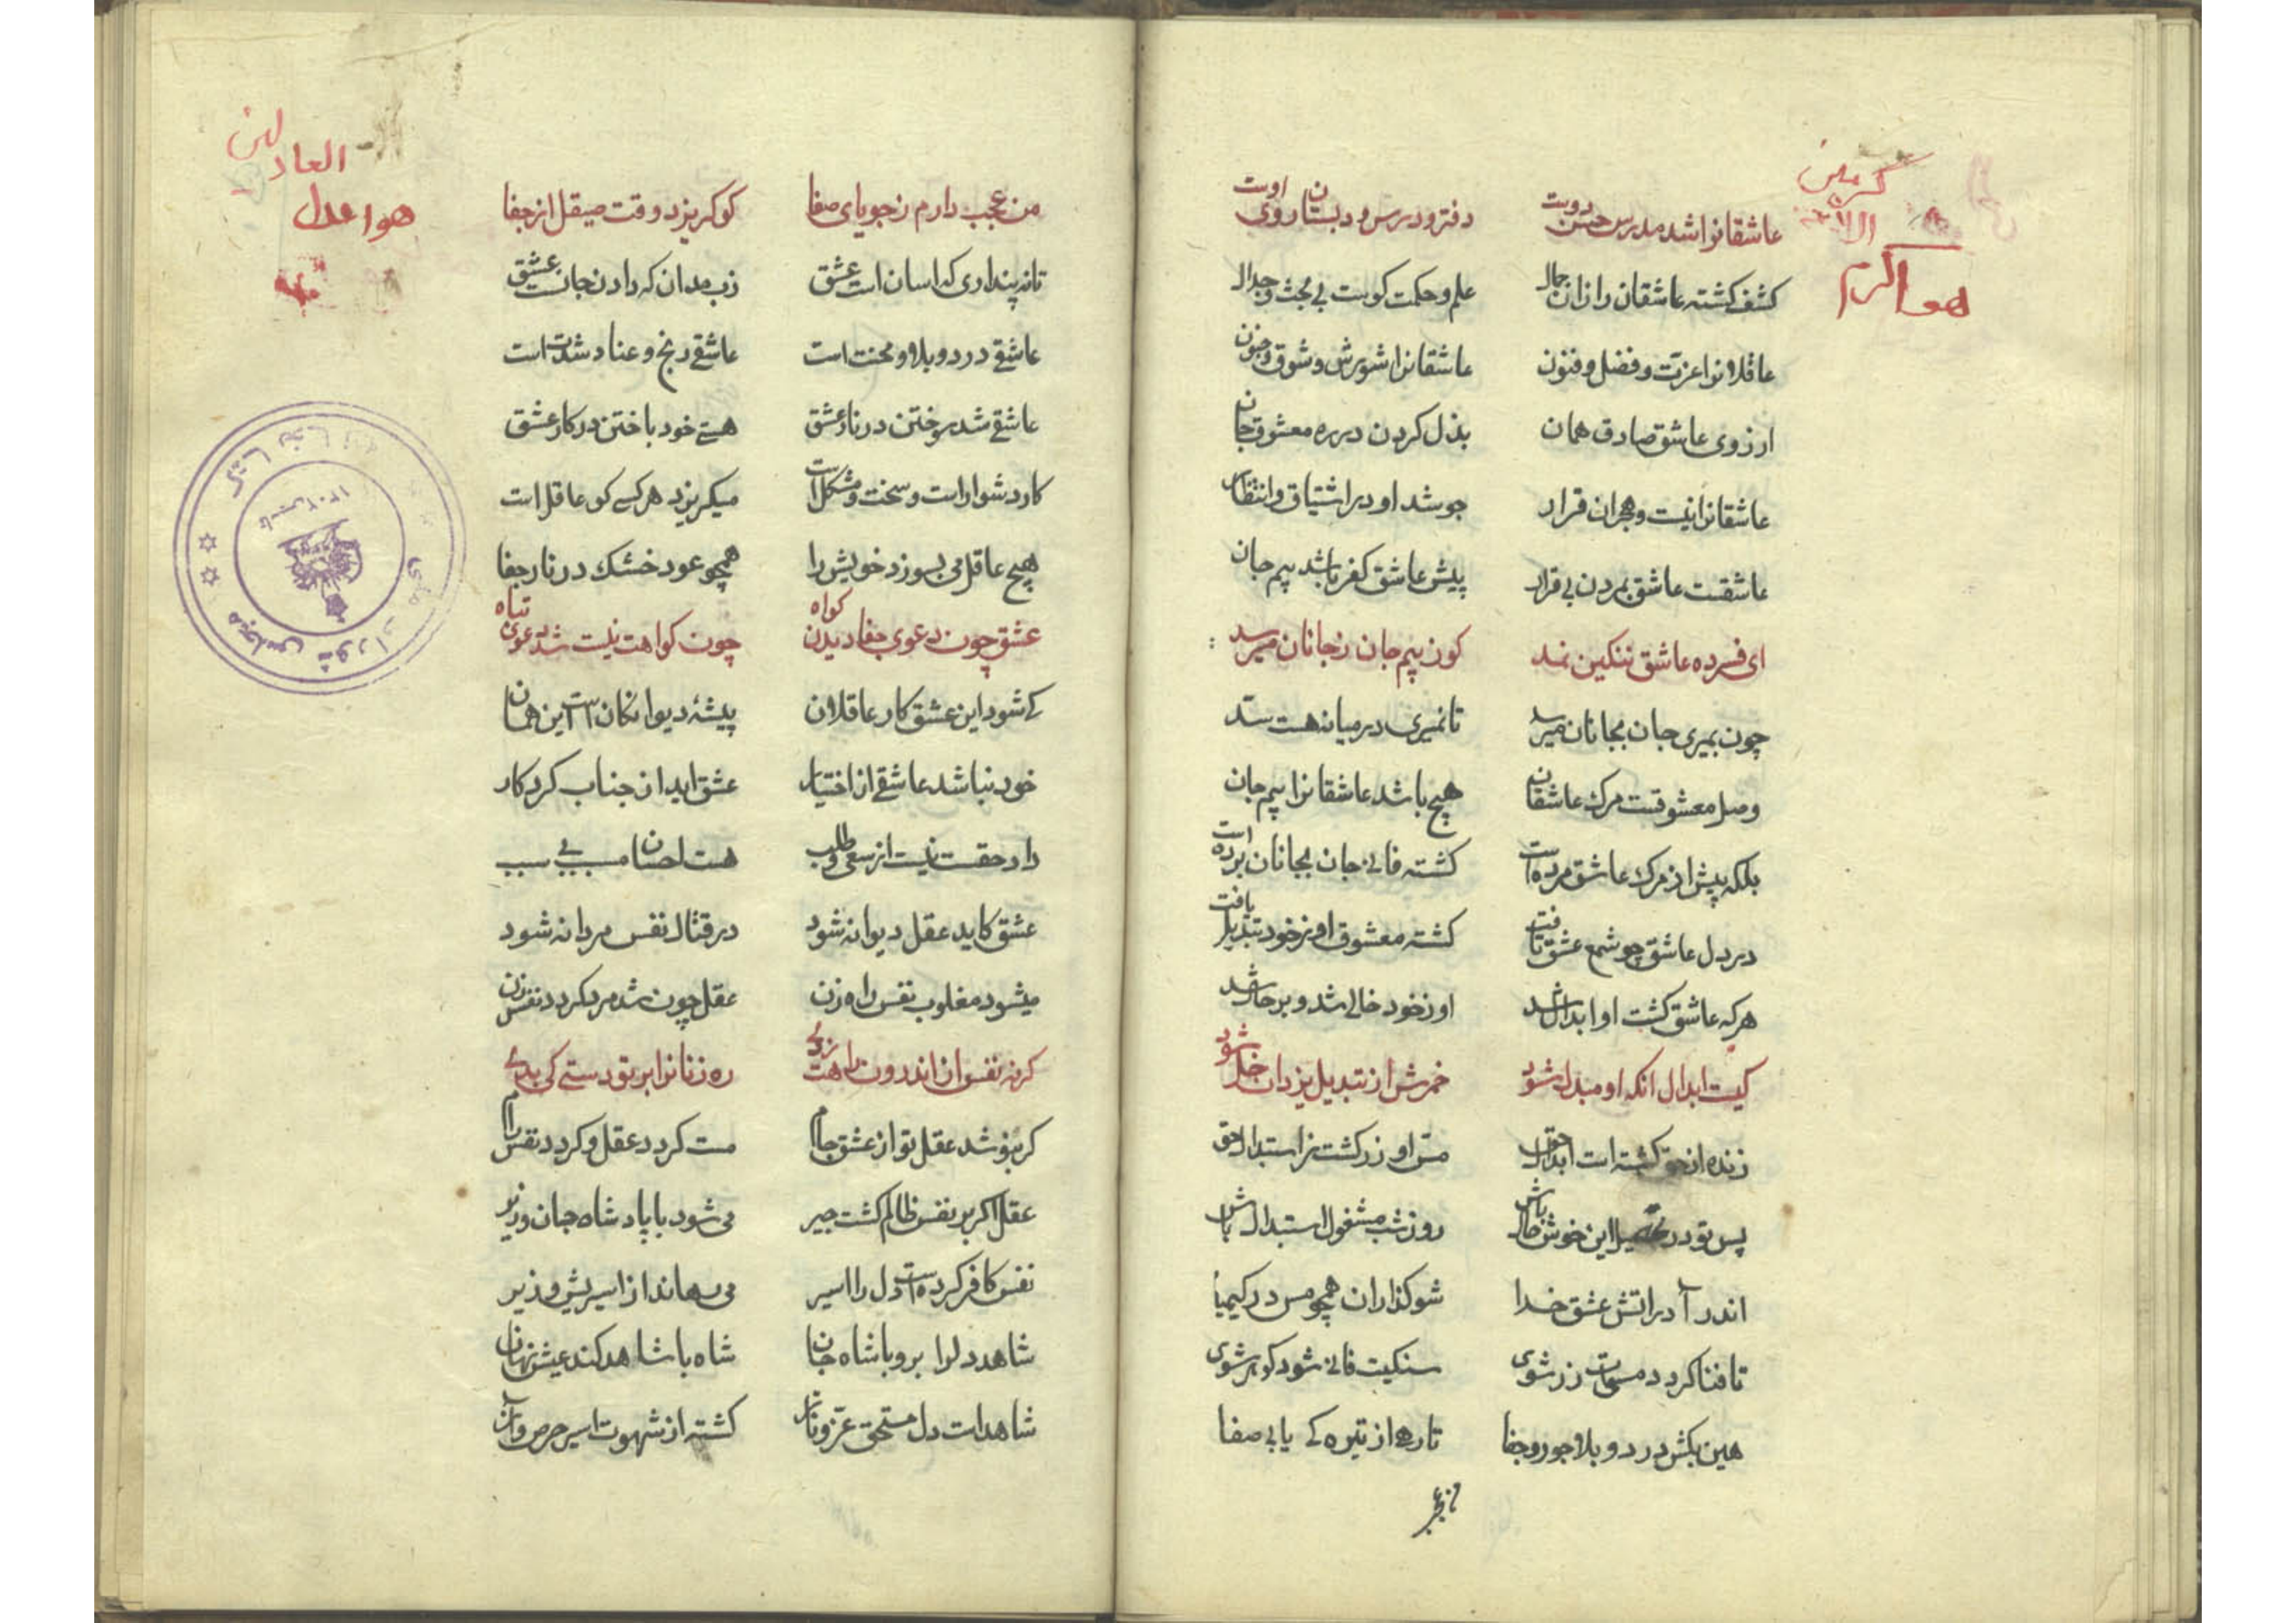 هو اکرم
الاکرمین
عاشقانرا شد مدرس حسن دوست دفتر و درس و دبستان روی اوست
کشف کشته عاشقان را زان جمال علم و حکمت کوست بی بحث و جدال
عاقلانرا عزت و فضل و فنون عاشقانرا شورش و شوق و جنون
ارزوی عاشق صادق همان بذل کردن در ره معشوق جان
عاشقانرا نیست و هجران قرار جوشد او در اشتیاق و انتظار
عاشقست عاشق بمردن بی قرار پیش عاشق کفر باشد بیم جان
ای فسرده عاشق ننکین نمد کو ز بیم جان ز جانان میرمد
چون بمیری جان بجانان میرسد تا نمیری در میانه هست سد
وصل معشوقست مرک عاشقان هیچ باشد عاشقانرا بیم جان
بلکه پیش از مرک عاشق مرده است کشته فانی جان بجانان برده است
در دل عاشق چو شمع عشق تافت کشته معشوق او ز خود تبدیل یافت
هر که عاشق کشت او ابدال شد او ز خود خالی شد و بر حال شد
کیست ابدال انکه او مبدل شود خمرش از تبدیل یزدان خل شود
زنده از حق کشته است ابدال حق مس او زر کشت از استبدال حق
پس تو در تحصیل این خوش حال باش روز شب مشغول استبدال باش
اندر آ در اتش عشق خدا شو کدازان همچو مس در کیمیا
تا فنا کردد مسیت زر شوی سنکیت فانی شود کوهر شوی
هین بکش درد و بلا جور و جفا تا رها از تیره کی یابی صفا
من عجب
هو اعدل
العادلین
من عجب دارم ز جویای صفا کو کریزد وقت صیقل از جفا
تا نه پنداری که اسان است عشق زب مدان که دادن جانست عشق
عاشقی درد و بلا و محنت است عاشقی رنج و عنا و شدت است
عاشقی شد سوختن در نار عشق هستی خود باختن در کار عشق
کار دشوار است و سخت و مشکل است میکریزد هر کسی کو عاقل است
هیچ عاقل می بسوزد خویش را همچو عود خشک در نار جفا
عشق چون دعوی جفا دیدن کواه چون کواهت نیست شد دعوی تباه
کی شود این عشق کار عاقلان پیشهٔ دیوانکان است این همان
خود نباشد عاشقی از اختیار عشق اید از جناب کردکار
داد حقست نیست از سعی و طلب هست احسان مسبب بی سبب
عشق کاید عقل دیوانه شود در قتال نفس مردانه شود
میشود مغلوب نفس راه زن عقل چون شد مرد کردد نفس زن
کر نه نفس از اندرون راهت زدی ره زنانرا بر تو دستی کی بدی
کر بنوشد عقل تو از عشق جام مست کردد عقل و کردد نفس رام
عقل اکر بر نفس ظالم کشت چیر می شود با پادشاه جان وزیر
نفس کافر کرده است دل را اسیر می رهاند از اسیریش وزیر
شاهد دل را برو با شاه جان شاه با شاهد کند عیش نهان
شاهد است دل مستحق عز و ناز کشته از شهوت اسیر حرص و آز
مجلس شورای ملی